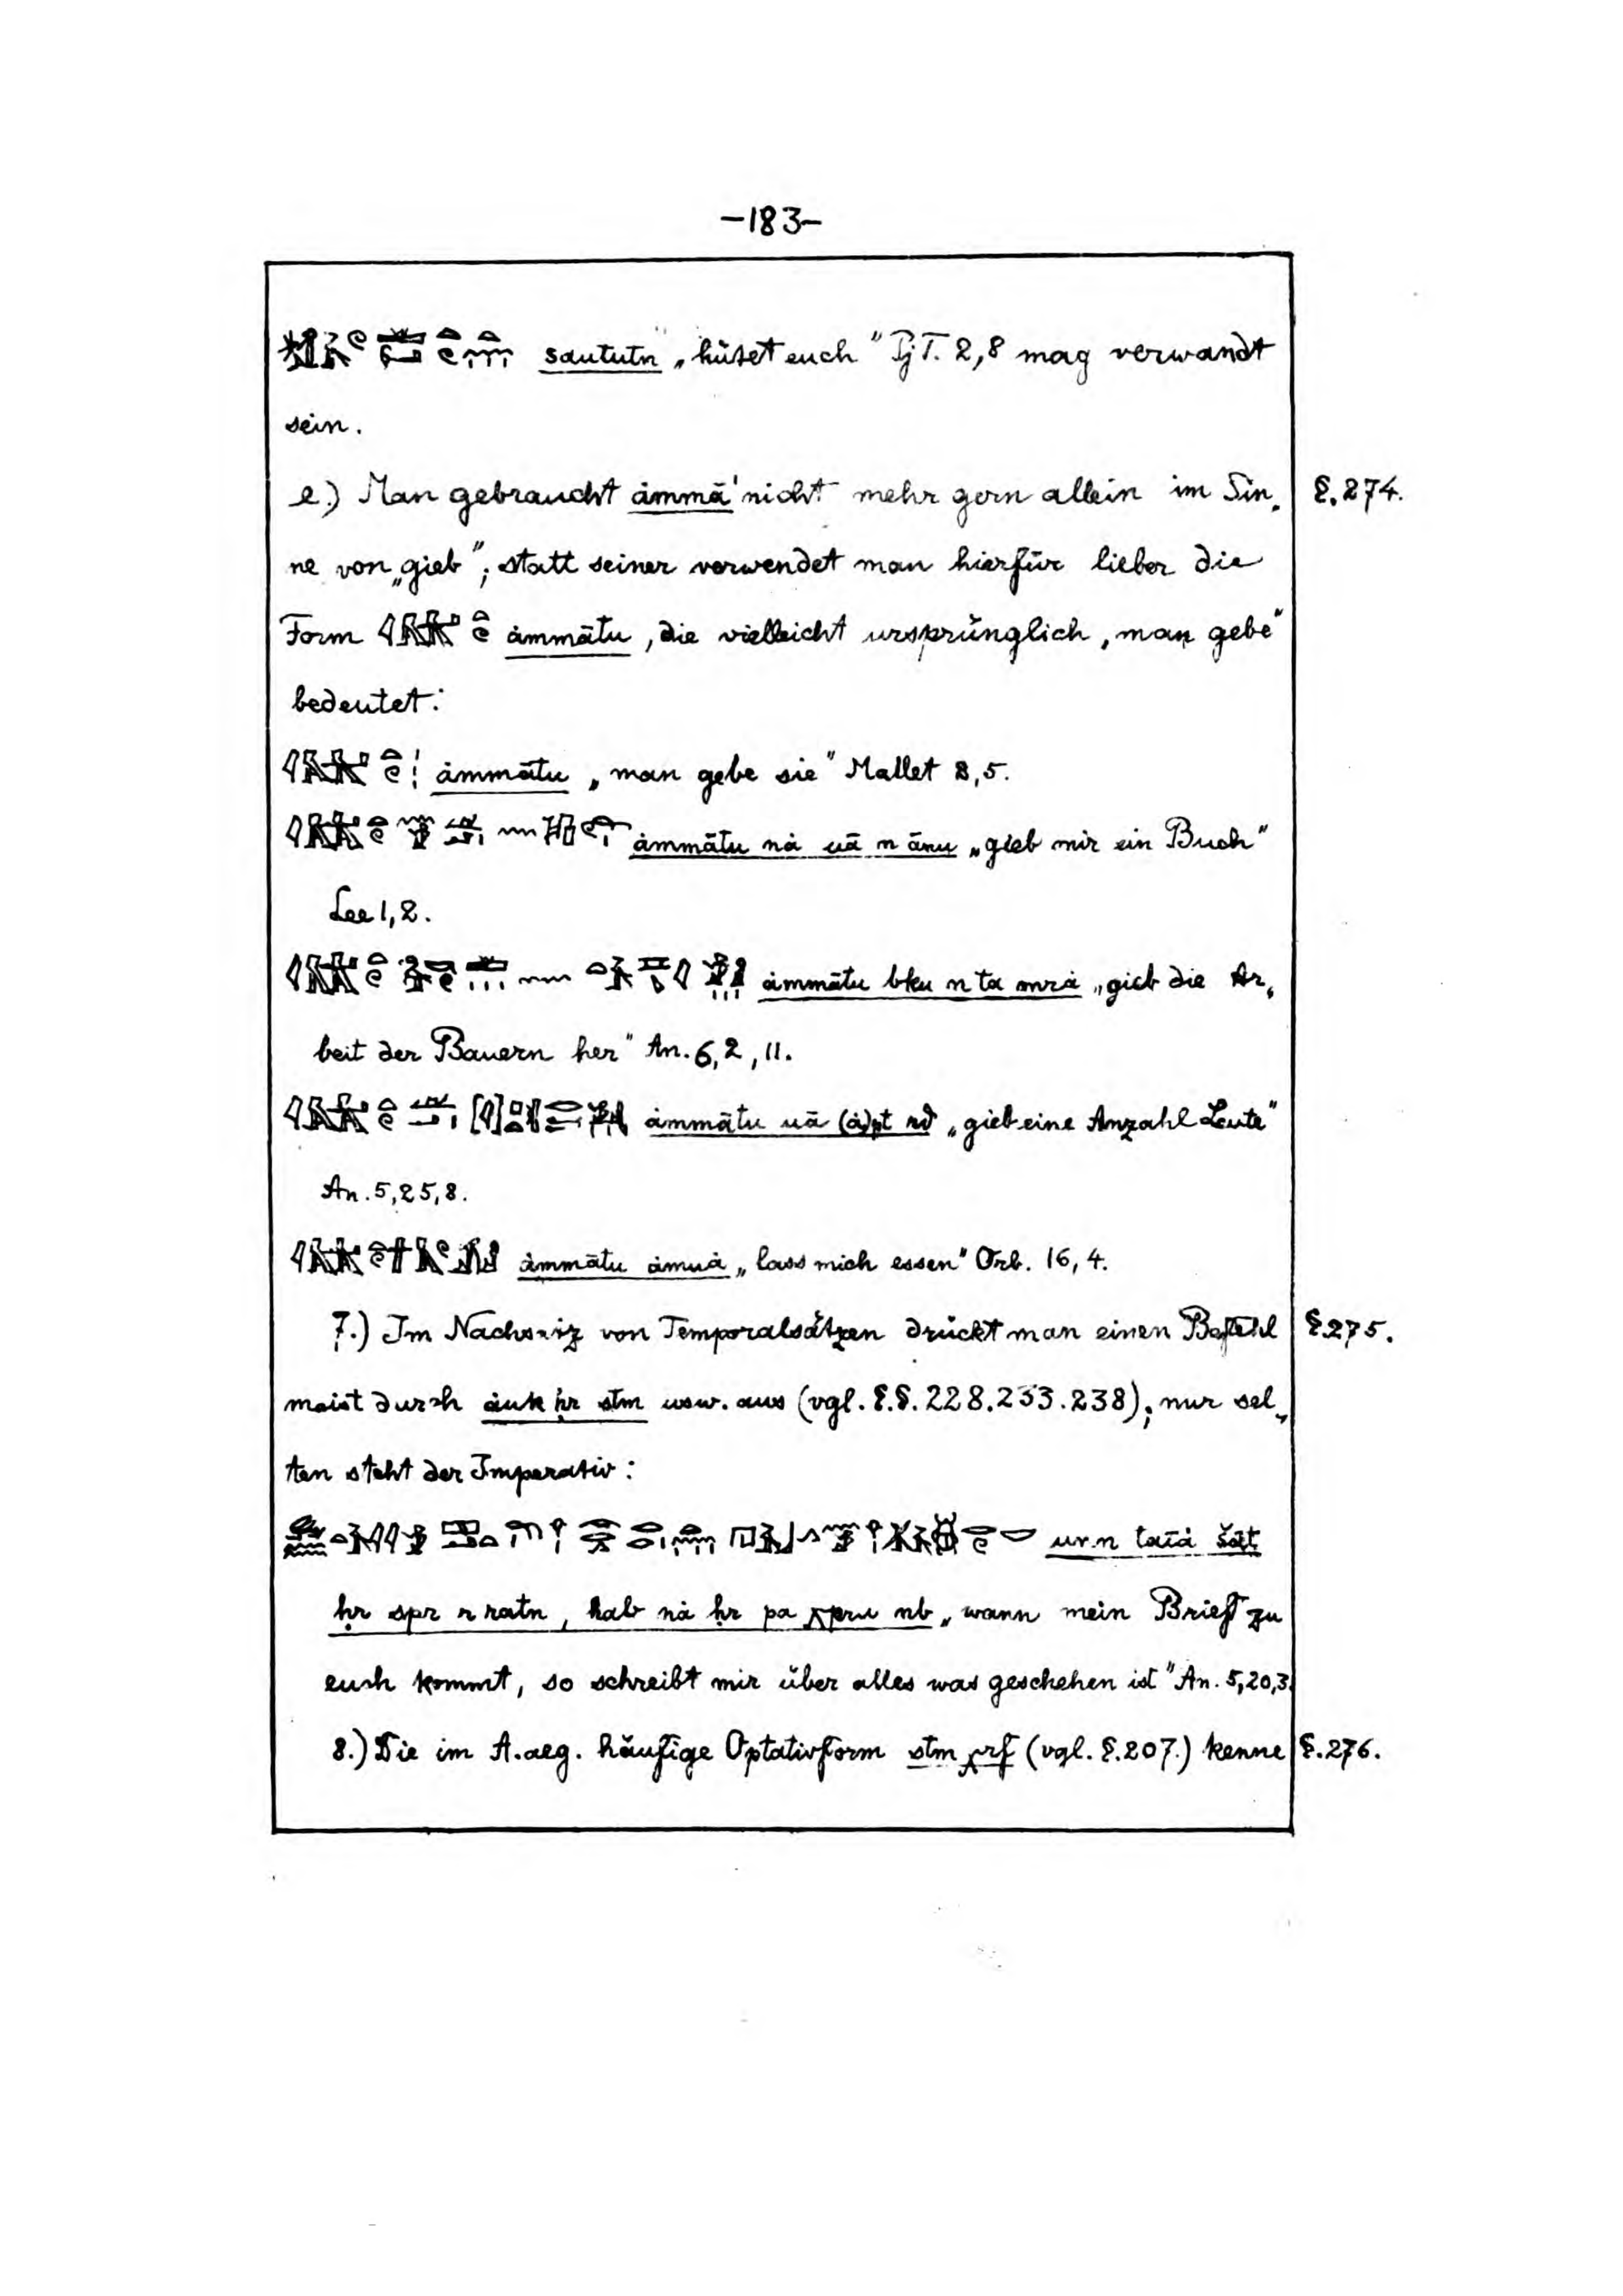 -183-
saututn „hütet euch" Pj T. 2,8 mag verwandt
sein.
e.) Man gebraucht ȧmmā nicht mehr gern allein im Sin- §.274.
ne von „gieb"; statt seiner verwendet man hierfür lieber die
Form ȧmmātu, die vielleicht ursprünglich „man gebe"
bedeutet:
ȧmmātu „man gebe sie" Mallet 2,5.
ȧmmātu nȧ uā n ānu „gieb mir ein Buch"
Lee 1,2.
ȧmmātu bku n ta mrȧ „gieb die Ar-
beit der Bauern her" An. 6,2,11.
ȧmmātu uā (ȧ)pt rd „gieb eine Anzahl Leute"
An. 5,25,8.
ȧmmātu ȧmuȧ „lass mich essen" Orb. 16,4.
7.) Im Nachsatz von Temporalsätzen drückt man einen Befehl §.275.
meist durch ȧuk ḥr stm usw. aus (vgl. §.§. 228.233.238); nur sel-
ten steht der Imperativ:
unn taīȧ šāt
ḥr spr r ratn, hab nȧ ḥr pa χpru nb „wann mein Brief zu
euch kommt, so schreibt mir über alles was geschehen ist" An. 5,20,3.
8.) Die im A.aeg. häufige Optativform stm χrf (vgl. §.207.) kenne §.276.